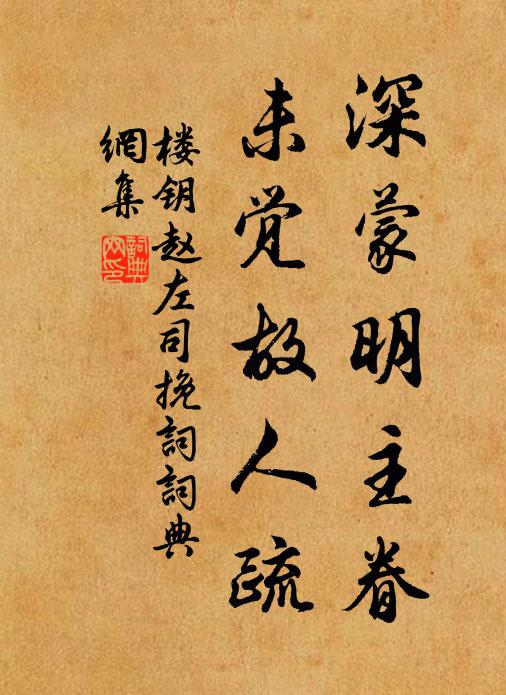 深蒙明主眷
未觉故人疏
楼钥赵左司挽詞詞典
網集
詞典
网印